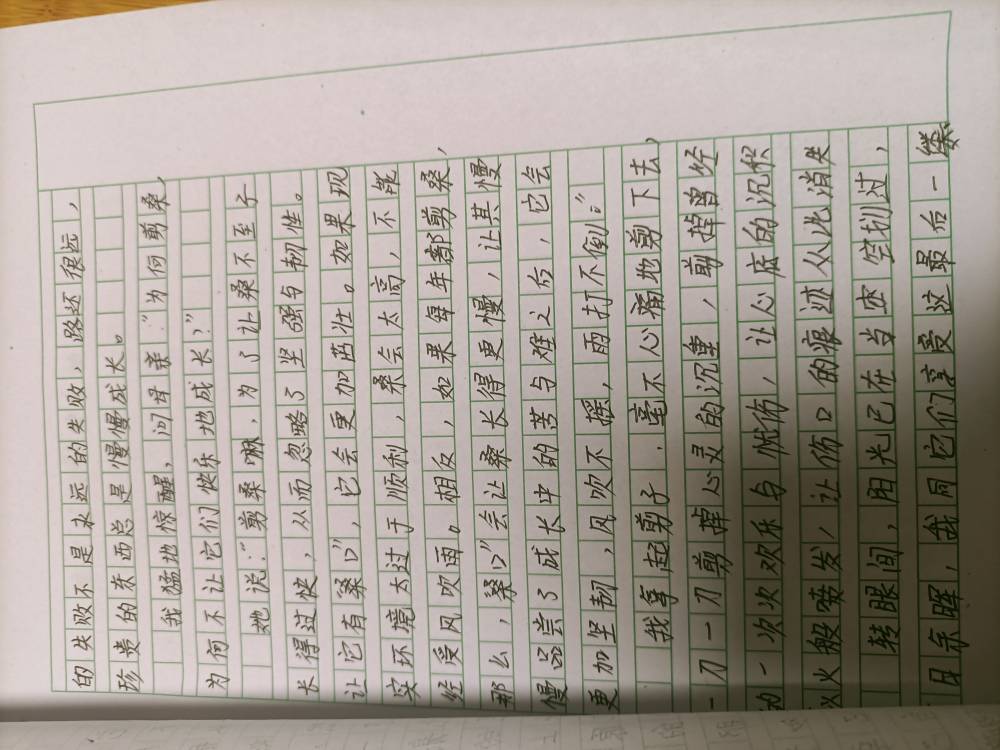 的失败不是永远的失败，路还很远，
珍贵的东西总是慢慢成长。
我猛地惊醒，问母亲：“为何剪桑，
为何不让它们快乐地成长？”
她说：“剪桑嘛，为了让桑不至于
长得过快，从而忽略了坚强与韧性。
让它有“桑口”，它会更加茁壮。如果现
实环境太过于顺利，桑会太高，不能
经受风吹雨。相反，如果每年都剪桑，
那么，“桑口”会让桑长得更慢，让其慢
慢品尝了成长中的苦与难之后，它会
更加坚韧，风吹不摇，雨打不倒。”
我拿起剪子，毫不心痛地剪下去，
一刀一刀剪掉心灵的沉重，剪掉曾经
的一次次欢乐与忧伤，让心底的沉积
似火般喷发，让伤口的痕迹从此消失
转眼间，阳光已在当空划过，
日余晖，我同它们享受这最后一缕